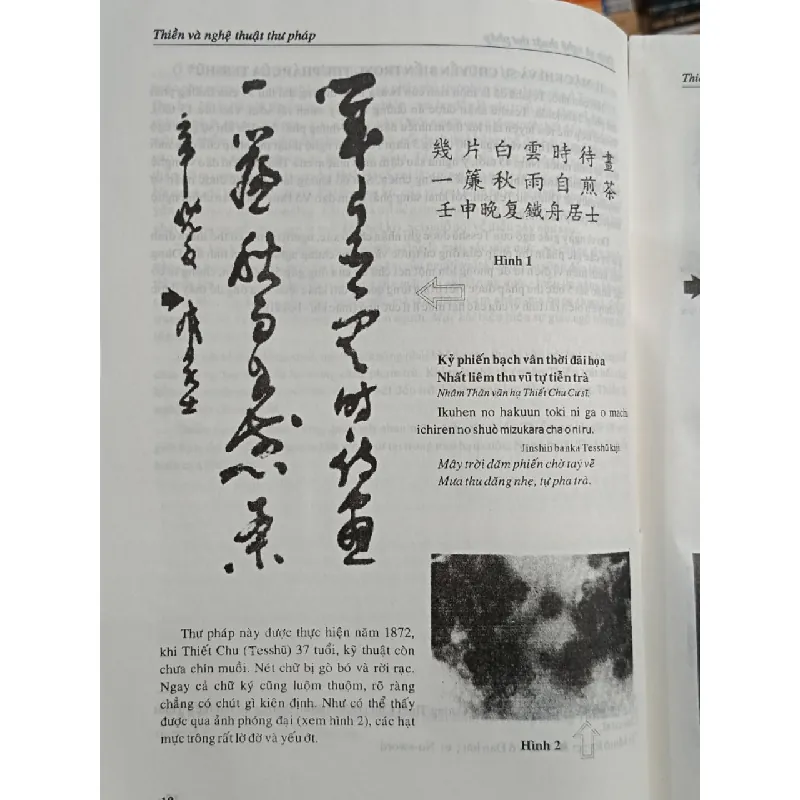 Thiền và nghệ thuật thư pháp
幾片白雲時待畫
一簾秋雨自煎茶
壬申晚复鐵舟居士
Hình 1
Kỷ phiến bạch vân thời đãi họa
Nhất liêm thu vũ tự tiễn trà
Nhâm Thân vãn hạ Thiết Chu Cư sĩ.
Ikuhen no hakuun toki ni ga o machi
ichiren no shuò mizukara cha o niru.
Jinshin banka Tesshū
Mây trời dăm phiến chờ tay vẽ
Mưa thu dăng nhẹ, tự pha trà.
Thư pháp này được thực hiện năm 1872,
khi Thiết Chu (Tesshū) 37 tuổi, kỹ thuật còn
chưa chín muồi. Nét chữ bị gò bó và rời rạc.
Ngay cả chữ ký cũng luộm thuộm, rõ ràng
chẳng có chút gì kiên định. Như có thể thấy
được qua ảnh phóng đại (xem hình 2), các hạt
mực trông rất lờ đờ và yếu ớt.
Hình 2
Thi